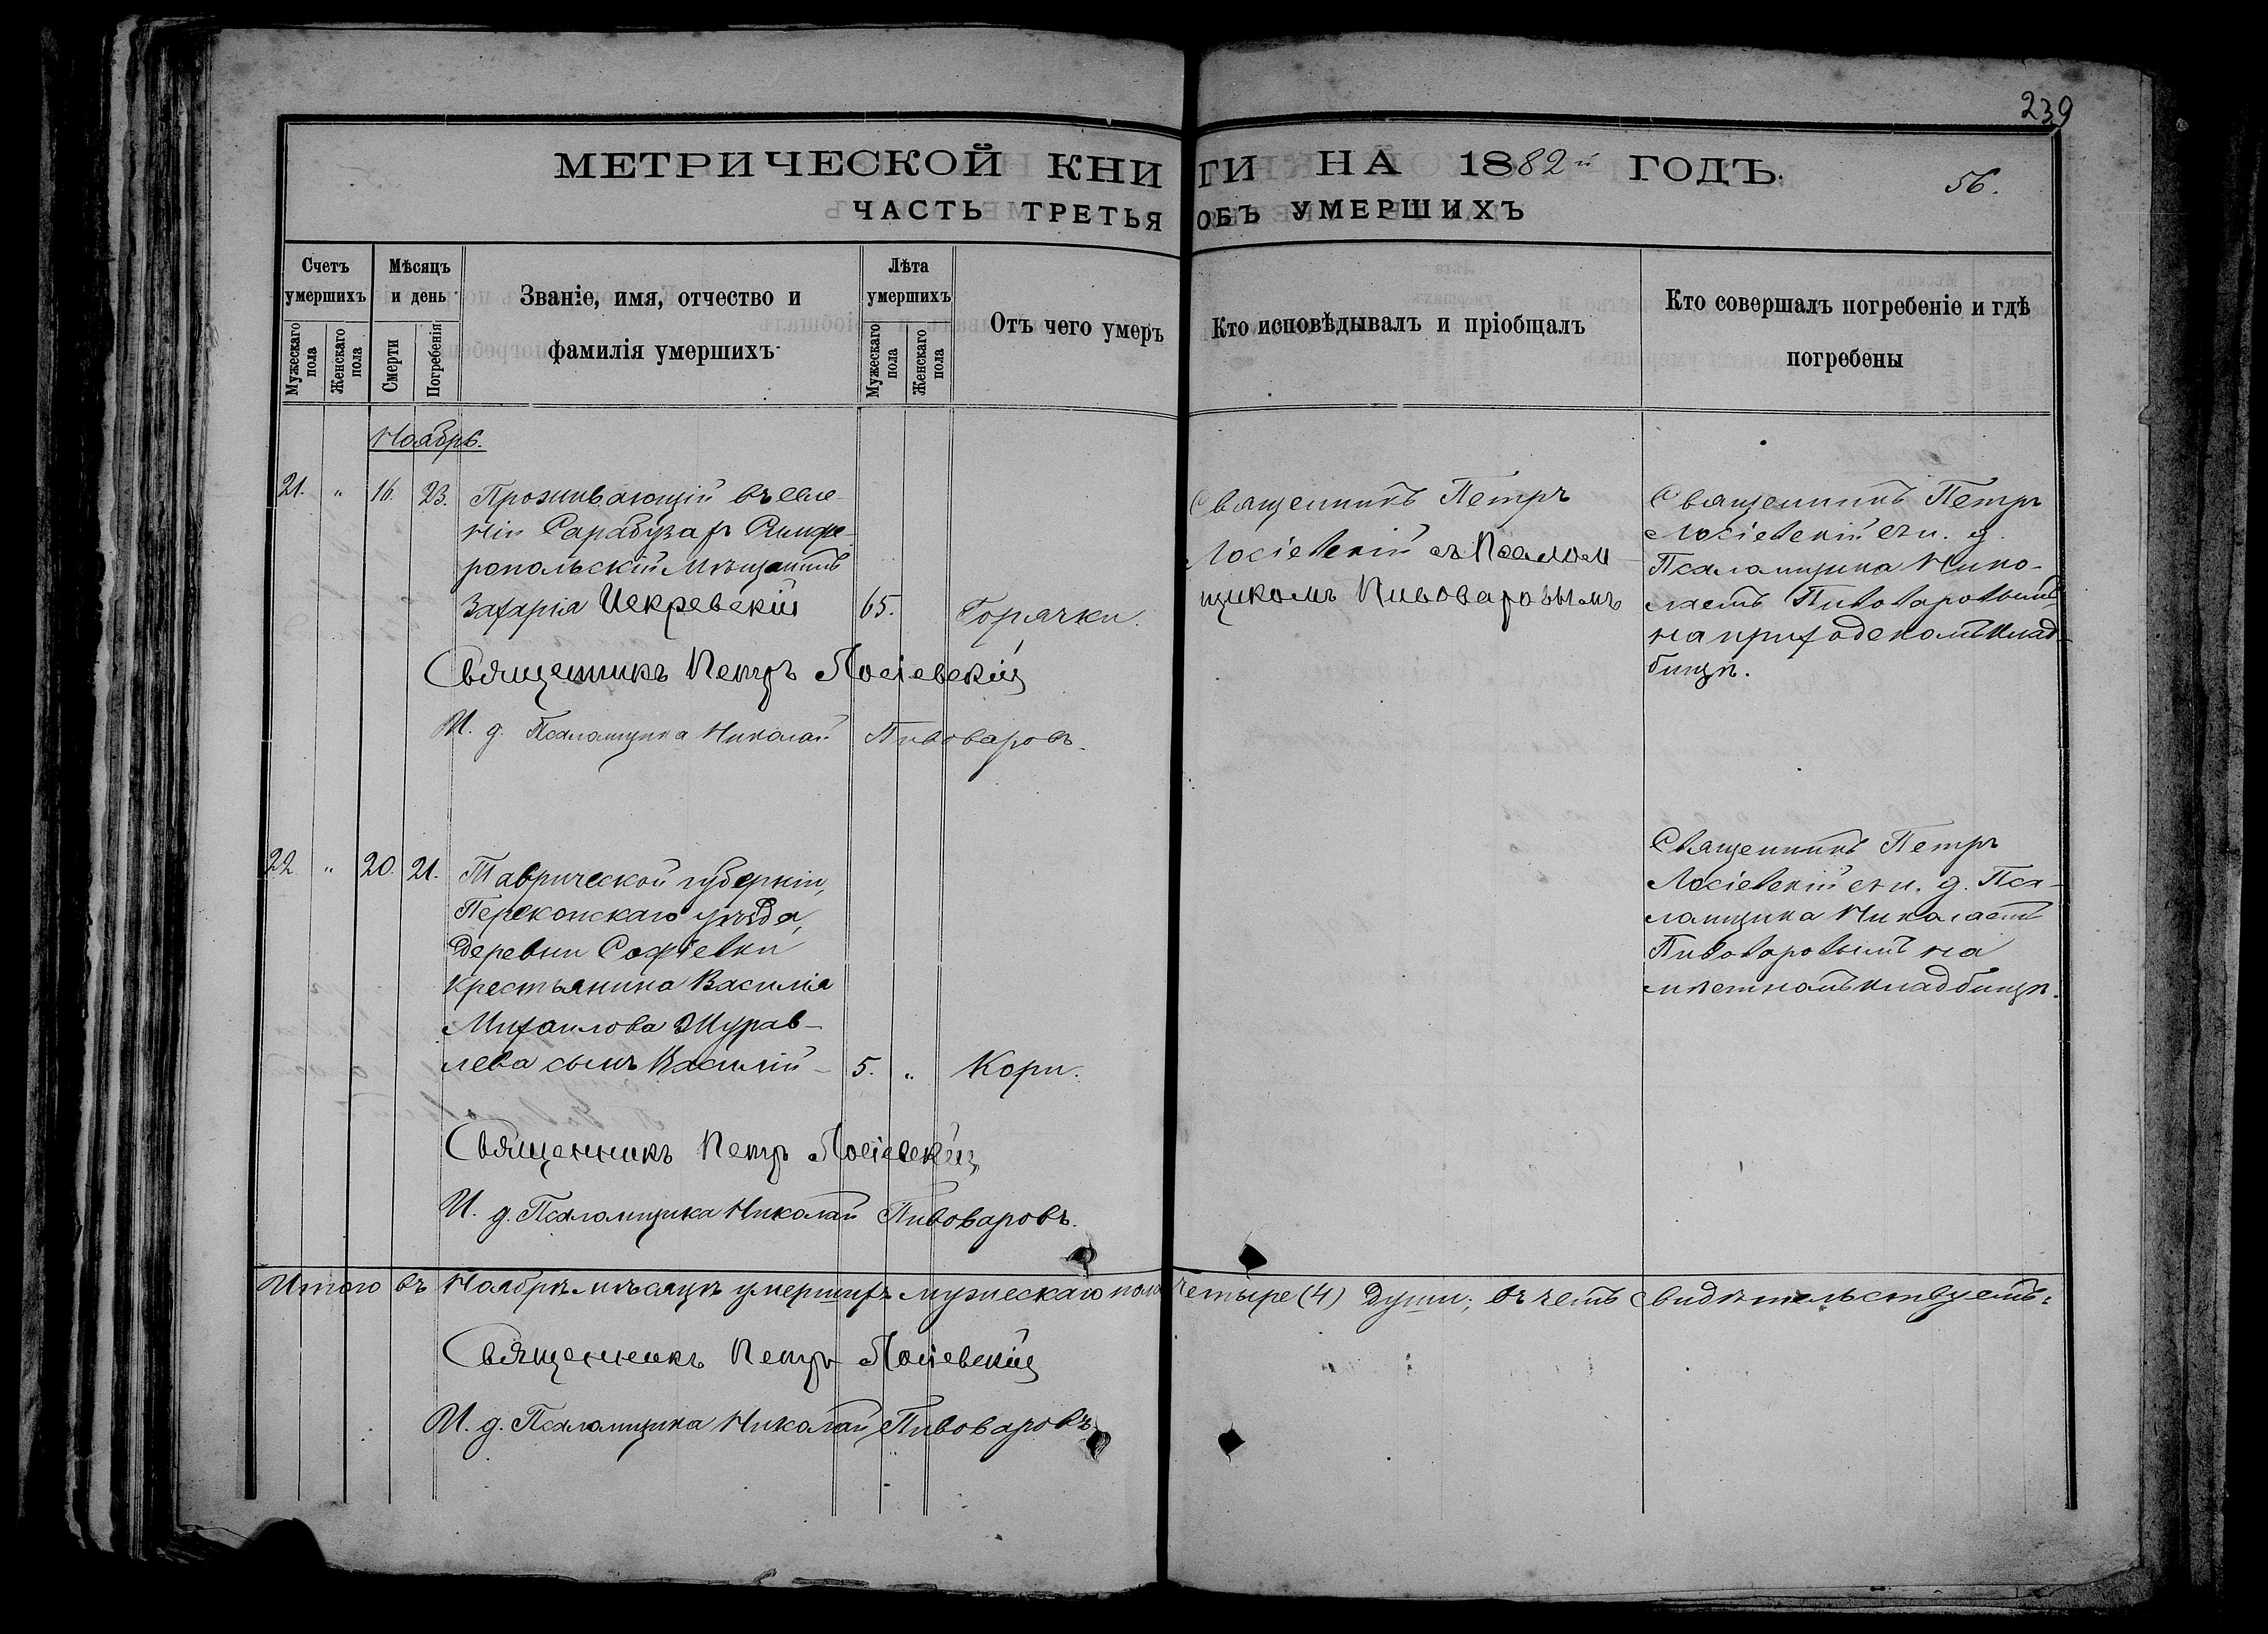 239
МЕТРИЧЕСКОЙ КНИГИ НА 1882й ГОДЪ.
56.
ЧАСТЬ ТРЕТЬЯ ОБЪ УМЕРШИХЪ
Счетъ умершихъ
Мужескаго пола
Женскаго пола
Мѣсяцъ и день
Смерти
Погребенія
Званіе, имя, отчество и
фамилія умершихъ
Лѣта умершихъ
Мужескаго пола
Женскаго пола
Отъ чего умеръ
Кто исповѣдывалъ и пріобщалъ
Кто совершалъ погребеніе и гдѣ
погребены
Ноябрь.
21. " 16. 23. Проживающій въ селе-
ніи Сарабузахъ Симфе-
ропольскій мѣщанинъ
Захарія Искревскій 65. Горячки.
Священникъ Петръ
Лосіевскій съ Псалом
щикомъ Пивоваровымъ
Священникъ Петръ
Лосіевскій съ и. д.
Псаломщика Нико-
лаемъ Пивоваровымъ
на приходскомъ клад-
бищѣ.
Священникъ Петръ Лосіевскій
И. д. Псаломщика Николай Пивоваровъ.
22. " 20. 21. Таврической губерніи,
Перекопскаго уѣзда,
деревни Софіевки
крестьянина Василія
Михаилова Журав-
лева сынъ Василій – 5. " Кори.
Священникъ Петръ
Лосіевскій съ и. д. Пса-
ломщика Николаемъ
Пивоваровымъ на
мѣстномъ кладбищѣ.
Священникъ Петръ Лосіевскій
И. д. Псаломщика Николай Пивоваровъ.
Итого въ Ноябрѣ мѣсяцѣ умершихъ мужескаго пола четыре (4) души; въ чемъ свидѣтельствуемъ:
Священникъ Петръ Лосіевскій
И. д. Псаломщика Николай Пивоваровъ